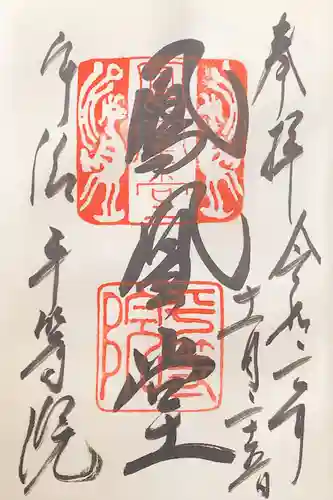 奉拝 令和二年
十一月二十五日
鳳凰堂
宇治 平等院